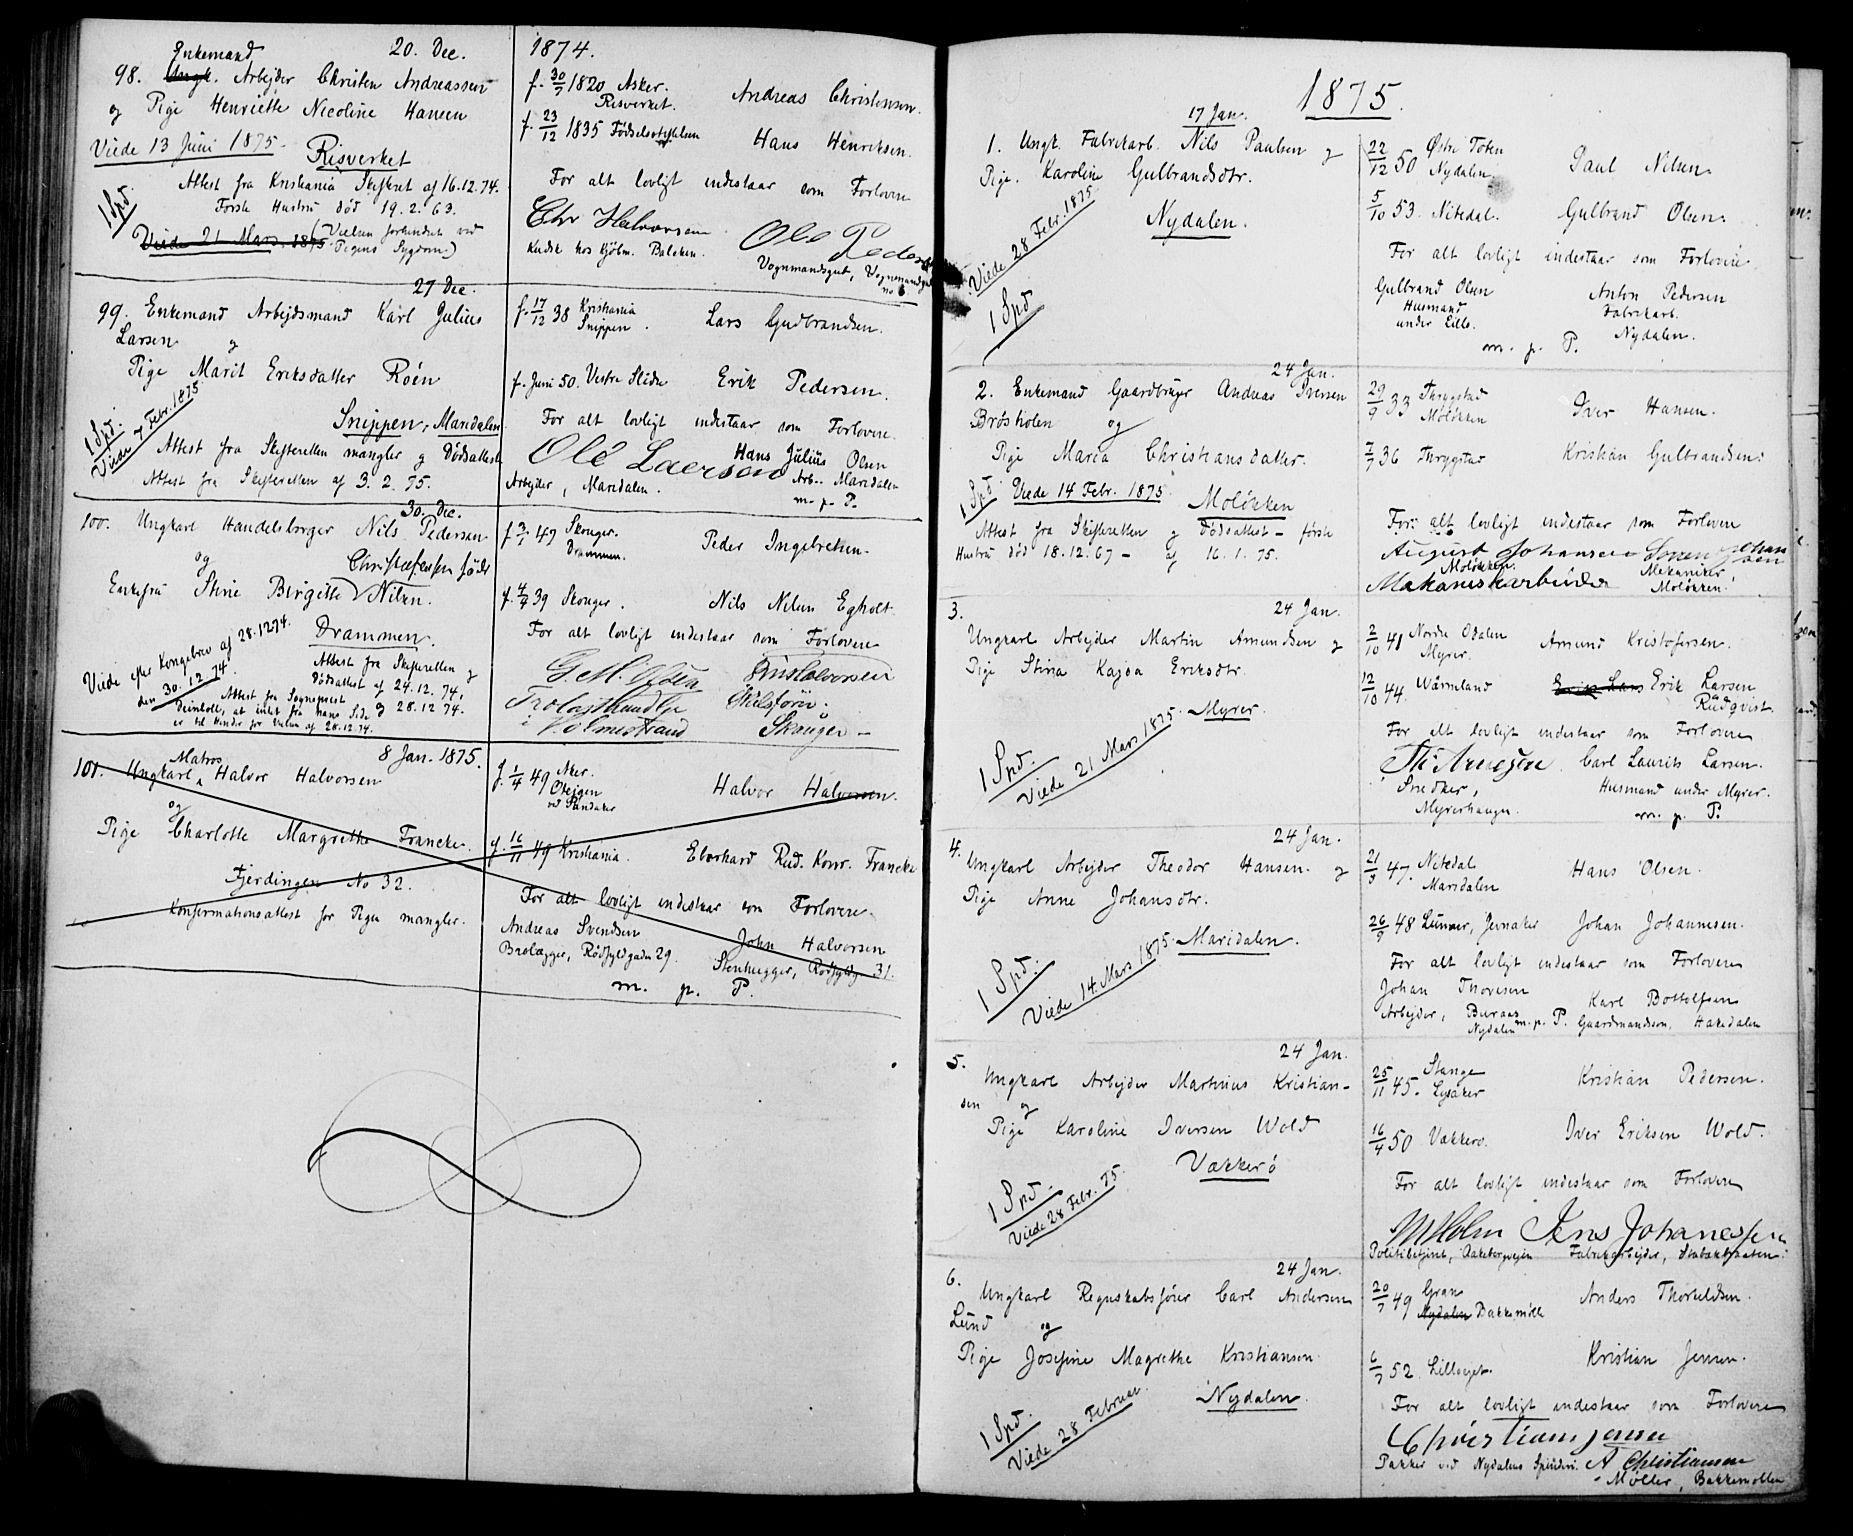 20. Dec. 1874.
Enkemand
98. Ungk. Arbejder Christen Andreassen f. 30/7 1820 Asker. Andreas Christensen.
Risverket.
og Pige Henriette Nicoline Hansen f. 23/12 1835 Hans Henriksen.
Viede 13 Juni 1875. Risverket
Attest fra Kristiania Skifteret af 16.12.74. For alt lovligt indestaar som Forlovere
1 Spd. Første Hustru død 19.2.63.
Viede 21 Mars 1875 (Vielsen forhindret ved
Pigens Sygdom)
Chr Halvorsen Ole Peders
Kudsk hos Kjøbm. Balcken. Vognmandsgut, Vognmandsg
no 6
27 Dec.
99. Enkemand Arbejdsmand Karl Julius f. 17/12 38 Kristiania Lars Gudbrandsen.
Larsen og Snippen.
Pige Marit Eriksdatter Röen f. Juni 50. Vestre Slidre Erik Pedersen.
1 Spd. Viede 7 Febr. 1875
Snippen, Maridalen For alt lovligt indestaar som Forlovere.
Attest fra Skifteretten mangler og Dødsattest
Ole Laersen Hans Julius Olsen
Attest fra Skifteretten af 3.2.75. Arbejder, Maridalen. Arb. Maridalen
m. p. P.
30. Dec.
100. Ungkarl Handelsborger Nils Pedersen f. 3/1 49 Skouger. Peder Ingebretsen.
og Christofersen født Drammen.
Enkefru Stine Birgitte Nilsen. f. 4/7 39 Skouger. Nils Nilsen Egholt.
For alt lovligt indestaar som Forlovere
Viede efter Kongebrev af 28.12 74. Drammen.
den 30.12.74. Attest fra Skifteretten og
Dødsattest af 24.12.74,
Attest fra Sognepræst
at intet fra hans Side 28.12 74.
er til Hinder for Vielsen af 28.12.74.
i Holmestrand Skouger
8 Jan. 1875.
Matros
101. Ungkarl Halvor Halvorsen f. 1/4 49 Aker. Halvor Halvorsen.
og ved Sandaker
Pige Charlotte Margrethe Francke. f. 16/11 49 Kristiania. Eberhard Rud. Konr. Francke
Fjerdingen No 32.
For alt lovligt indestaar som Forlovere.
Konfirmationsattest for Pigen mangler.
Andreas Svendsen John Halvorsen
Brolægger, Rødfyldgaden 29. Stenhugger, Rødfyldg 31.
m. p. P.
1875.
17 Jan.
1. Ungk. Fabrikarb. Nils Paulsen og 22/12 50 Østre Toten Paul Nilsen.
Nydalen
Pige. Karoline Gulbrandsdtr. 5/10 53. Nitedal. Gulbrand Olsen.
Nydalen.
Viede 28 Febr. 1875
1 Spd
For alt lovligt indestaar som Forlovere
Gulbrand Olsen Anton Pedersen
Husmand Fabrikarb.
under Lille. Nydalen.
m. p. P.
24 Jan.
2. Enkemand Gaardbruger Andreas Iversen 29/9 33 Thrygstad Iver Hansen.
Brøsholen og Moløkken
Pige Maria Christiansdatter. 7/7 36 Thrygstad Kristian Gulbrandsen.
1 Spd Viede 14 Febr. 1875. Moløkken
Attest fra Skifteretten og Dødsattest – første
Hustru død 18.12.67 – af 16.1.75.
For alt lovligt indestaar som Forlovere
August Johansen Soren Johansen
Moløkken. Mekaniker,
Makaniskarbeider Moløkken.
3. 24 Jan.
Ungkarl Arbejder Martin Amundsen og 2/10 41 Nordre Odalen Amund Kristofersen.
Myrer.
Pige Stina Kajsa Eriksdtr. 12/10 44. Wärmland Erik Lars Erik Larsen
Rudqvist.
Myrer.
1 Spd. Viede 21 Mars 1875.
For alt lovligt indestaar som Forlovere
Th. Arnesen Carl Laurits Larsen.
Snedker, Husmand under Myrer.
Myrerhaugen m. p. P.
4. 24 Jan.
Ungkarl Arbejder Theodor Hansen og 21/3 47. Nitedal Hans Olsen.
Maridalen
Pige Anne Johansdtr. 26/9 48 Lunner, Jevnaker Johan Johannesen.
Maridalen.
1 Spd. Viede 14. Mars 1875.
For alt lovligt indestaar som Forlovere
Johan Thoresen Karl Bottolfsen
Arbejder, Buraas m. p. P. Gaardmandssøn, Hakedalen
Nydalen
5. 24 Jan.
Ungkarl Arbejder Martinius Kristian- 25/11 45. Stange Kristian Pedersen.
sen og Lysaker
Pige Karoline Iversen Wold 16/4 50 Vækkerø. Iver Eriksen Wold.
Vækkerø
1 Spd. Viede 28 Febr. 75.
For alt lovligt indestaar som Forlovere
M Holm Jens Johanessen
Politibetjent, Fabrikarbejder,
6. 24 Jan.
Ungkarl Regnskabsfører Carl Andersen 20/7 49 Gran Anders Thorkildsen.
Lund og Nydalen Bakkemølle
Pige Josefine Magrethe Kristiansen. 6/7 52. Kristian Jensen.
Nydalen.
1 Spd. Viede 28 Februar
For alt lovligt indestaar som Forlovere
Christian Jensen
Pakker ved Nydalens Spinderi. A Christiansen
Møller, Bakkemøllen